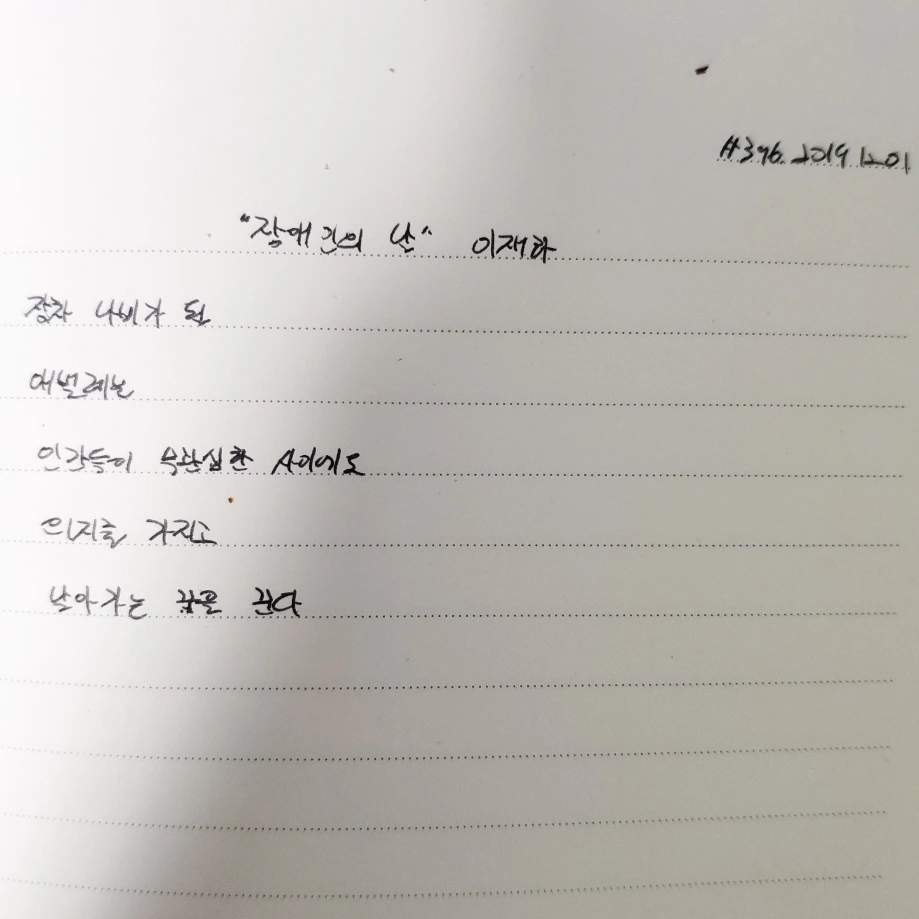 #396. 2019 12.01
"장애인의 날" 이재하
장차 나비가 될
애벌레는
인간들이 무관심한 사이에도
의지를 가지고
날아가는 꿈을 꾼다